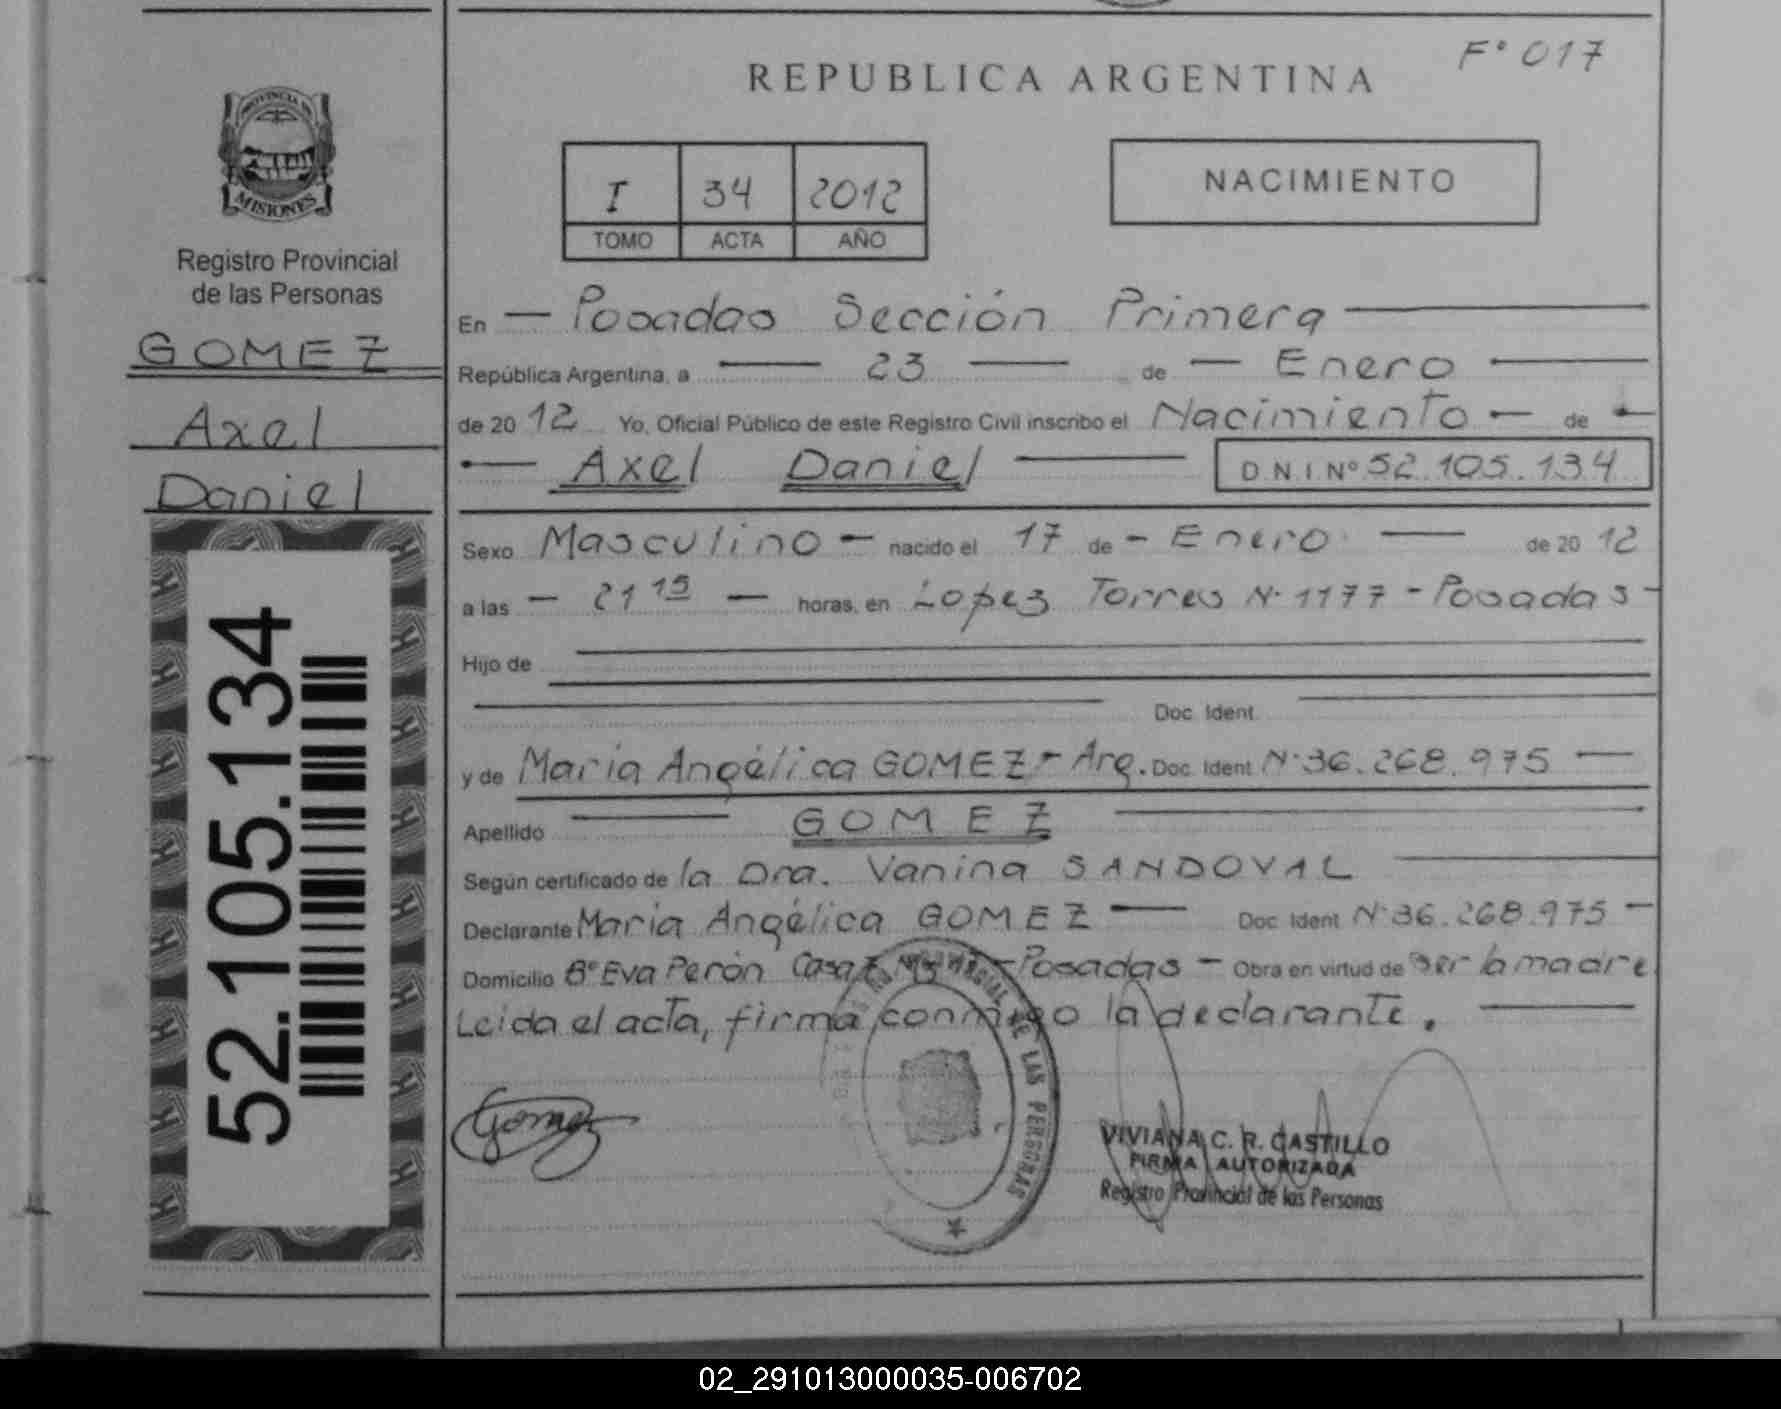 F° 017
REPUBLICA ARGENTINA
PROVINCIA DE
MISIONES
Registro Provincial
de las Personas
GOMEZ
Axel
Daniel
52.105.134
I 34 2012
TOMO ACTA AÑO
NACIMIENTO
En — Posadas Sección Primera —
República Argentina, a — 23 — de — Enero —
de 20 12 Yo, Oficial Público de este Registro Civil inscribo el Nacimiento — de —
— Axel Daniel — D.N.I. Nº 52.105.134
Sexo Masculino — nacido el 17 de — Enero — de 20 12
a las — 21 15 — horas, en Lopez Torres N° 1177 - Posadas -
Hijo de
Doc. Ident.
y de Maria Angélica GOMEZ - Arg. Doc. Ident N° 36.268.975 —
Apellido — GOMEZ —
Según certificado de la Dra. Vanina SANDOVAL —
Declarante Maria Angélica GOMEZ — Doc. Ident N° 36.268.975 —
Domicilio Bº Eva Perón Casa - Posadas - Obra en virtud de ser la madre
Leida el acta, firma conmigo la declarante. —
Gomez
PROVINCIAL DE LAS PERSONAS
VIVIANA C. R. CASTILLO
FIRMA AUTORIZADA
Registro Provincial de las Personas
02_291013000035-006702